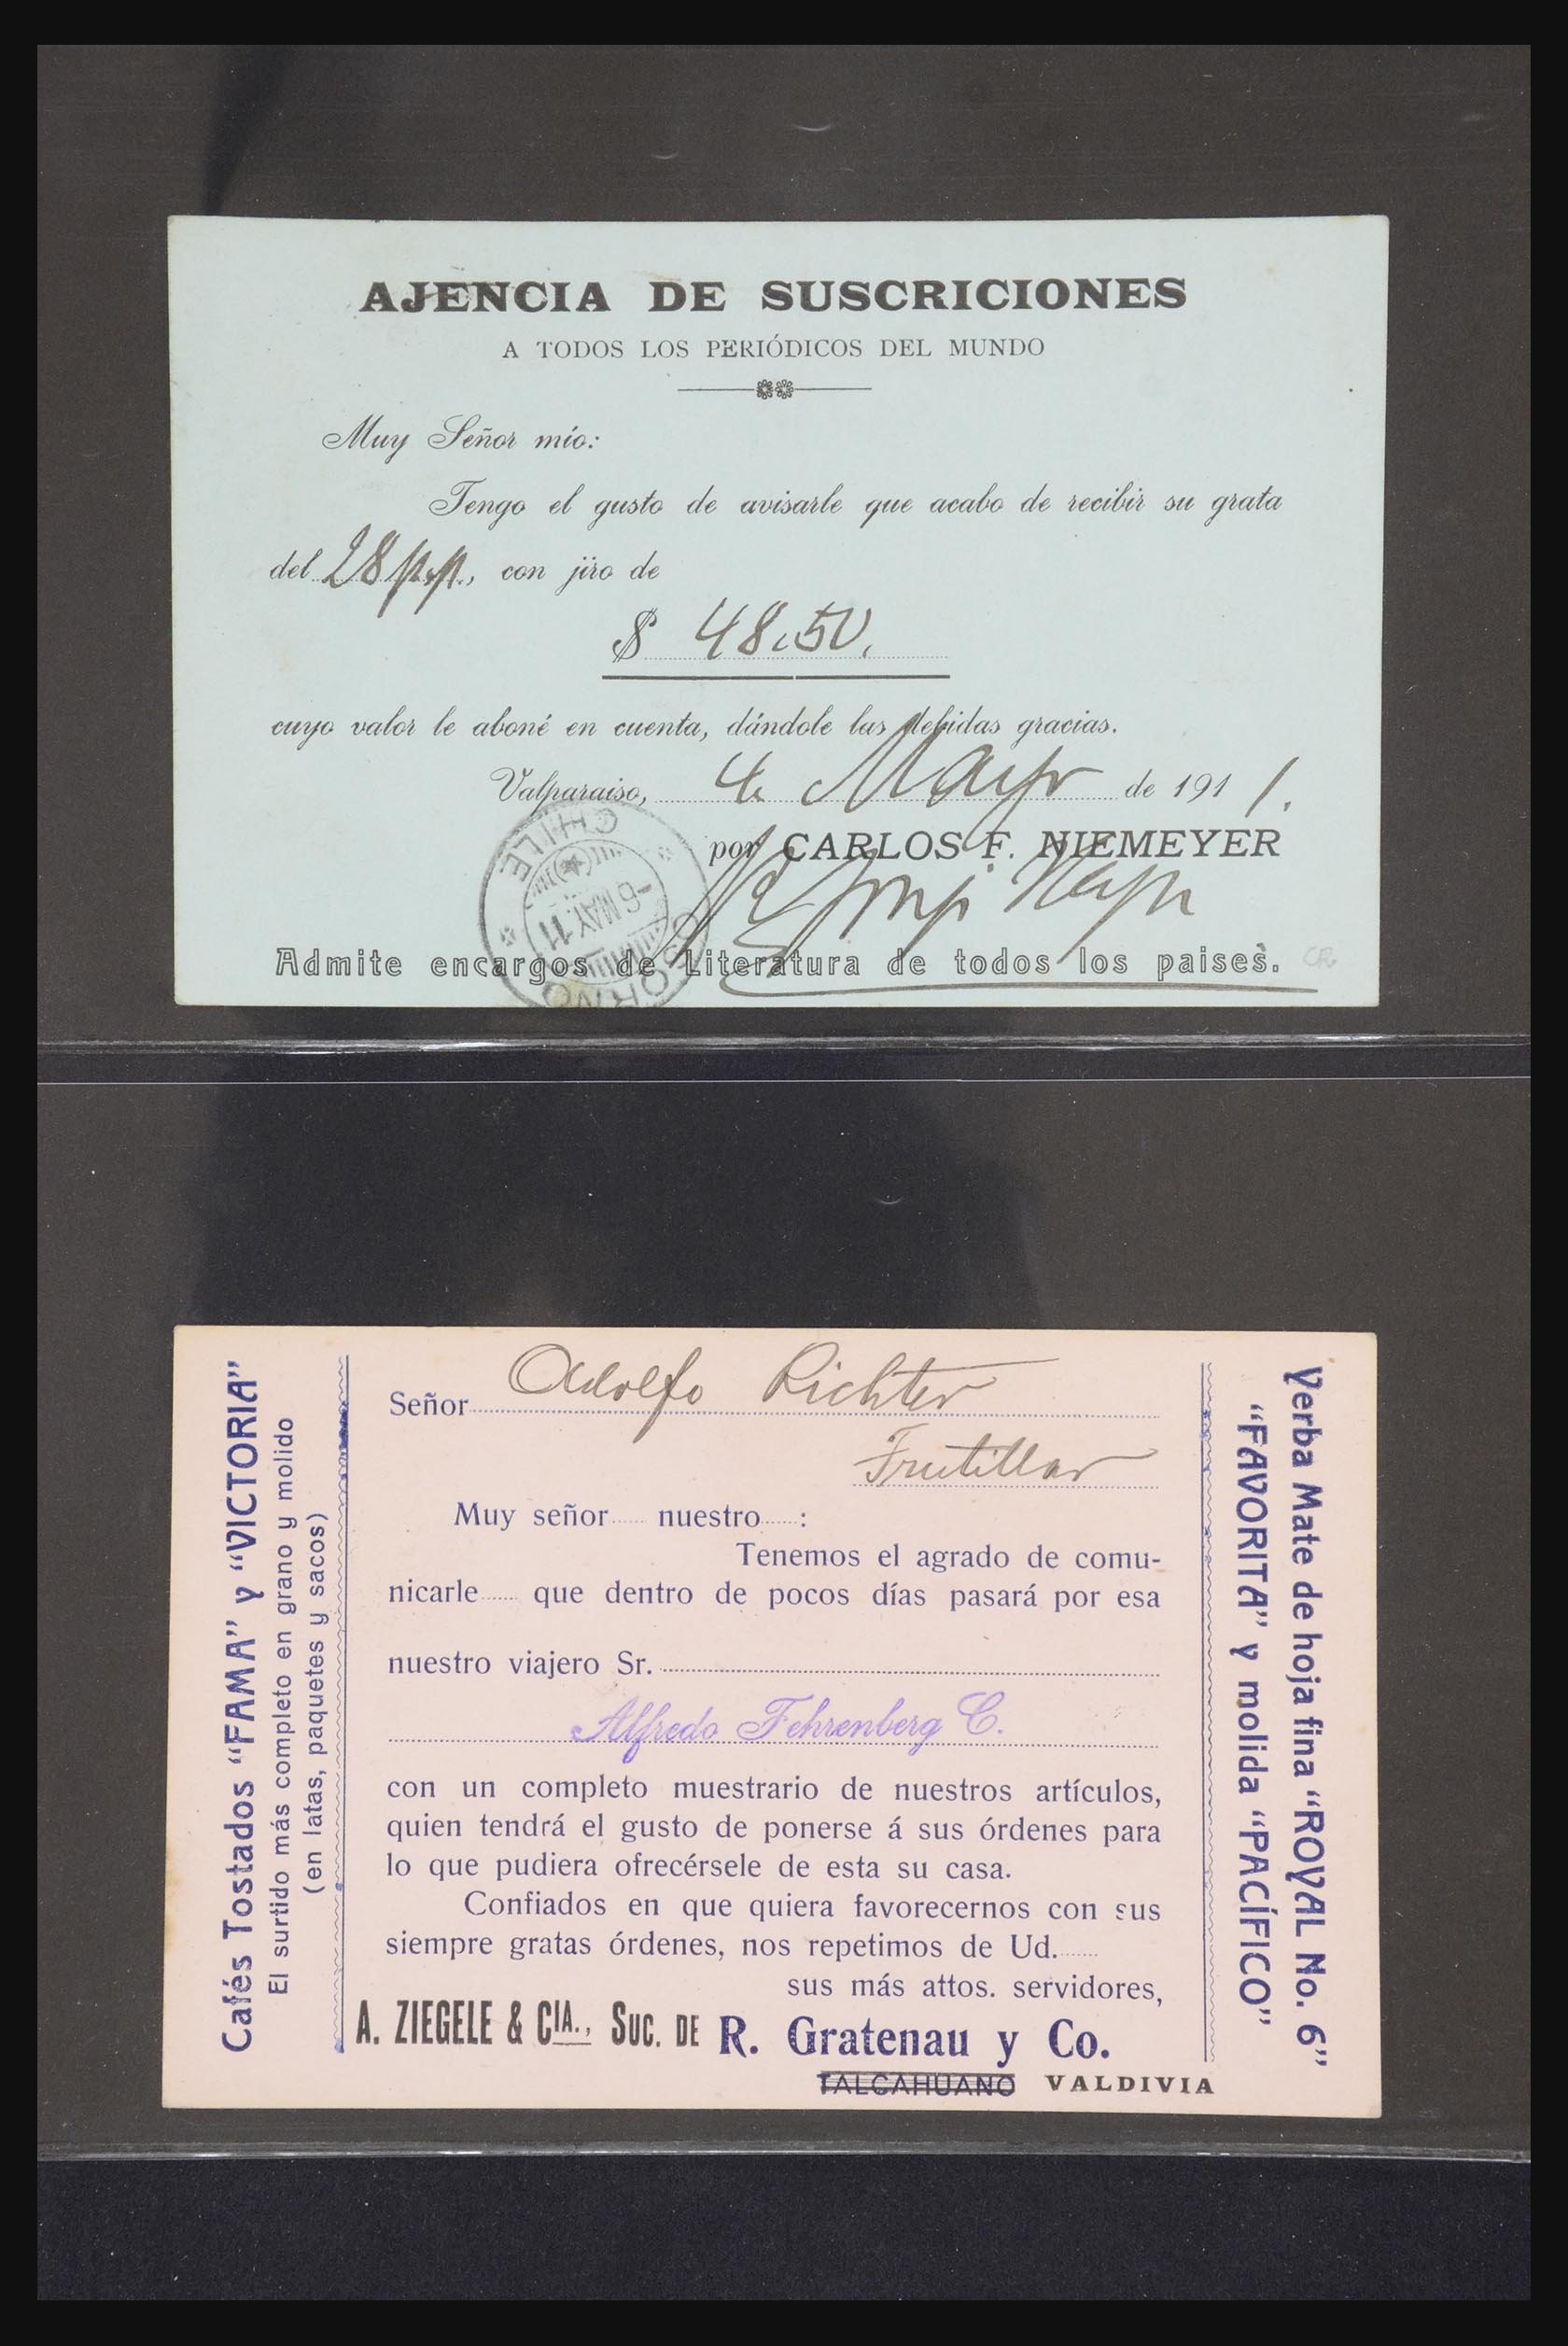 AJENCIA DE SUSCRICIONES
A TODOS LOS PERIÓDICOS DEL MUNDO
Muy Señor mío:
Tengo el gusto de avisarle que acabo de recibir su grata
del 28 p.p., con jiro de
$ 48.50.
cuyo valor le aboné en cuenta, dándole las debidas gracias.
Valparaiso, 4 Mayo de 1911.
por CARLOS F. NIEMEYER
Admite encargos de Literatura de todos los paises.
OSORNO
-6 MAY. 11
CHILE
CR
Cafés Tostados "FAMA" y "VICTORIA"
El surtido más completo en grano y molido
(en latas, paquetes y sacos)
Señor Adolfo Richter
Frutillar
Muy señor nuestro :
Tenemos el agrado de comu-
nicarle que dentro de pocos días pasará por esa
nuestro viajero Sr.
Alfredo Fehrenberg C.
con un completo muestrario de nuestros artículos,
quien tendrá el gusto de ponerse á sus órdenes para
lo que pudiera ofrecérsele de esta su casa.
Confiados en que quiera favorecernos con sus
siempre gratas órdenes, nos repetimos de Ud.
sus más attos. servidores,
A. ZIEGELE & CIA., SUC. DE R. Gratenau y Co.
TALCAHUANO VALDIVIA
Yerba Mate de hoja fina "ROYAL No. 6"
"FAVORITA" y molida "PACÍFICO"